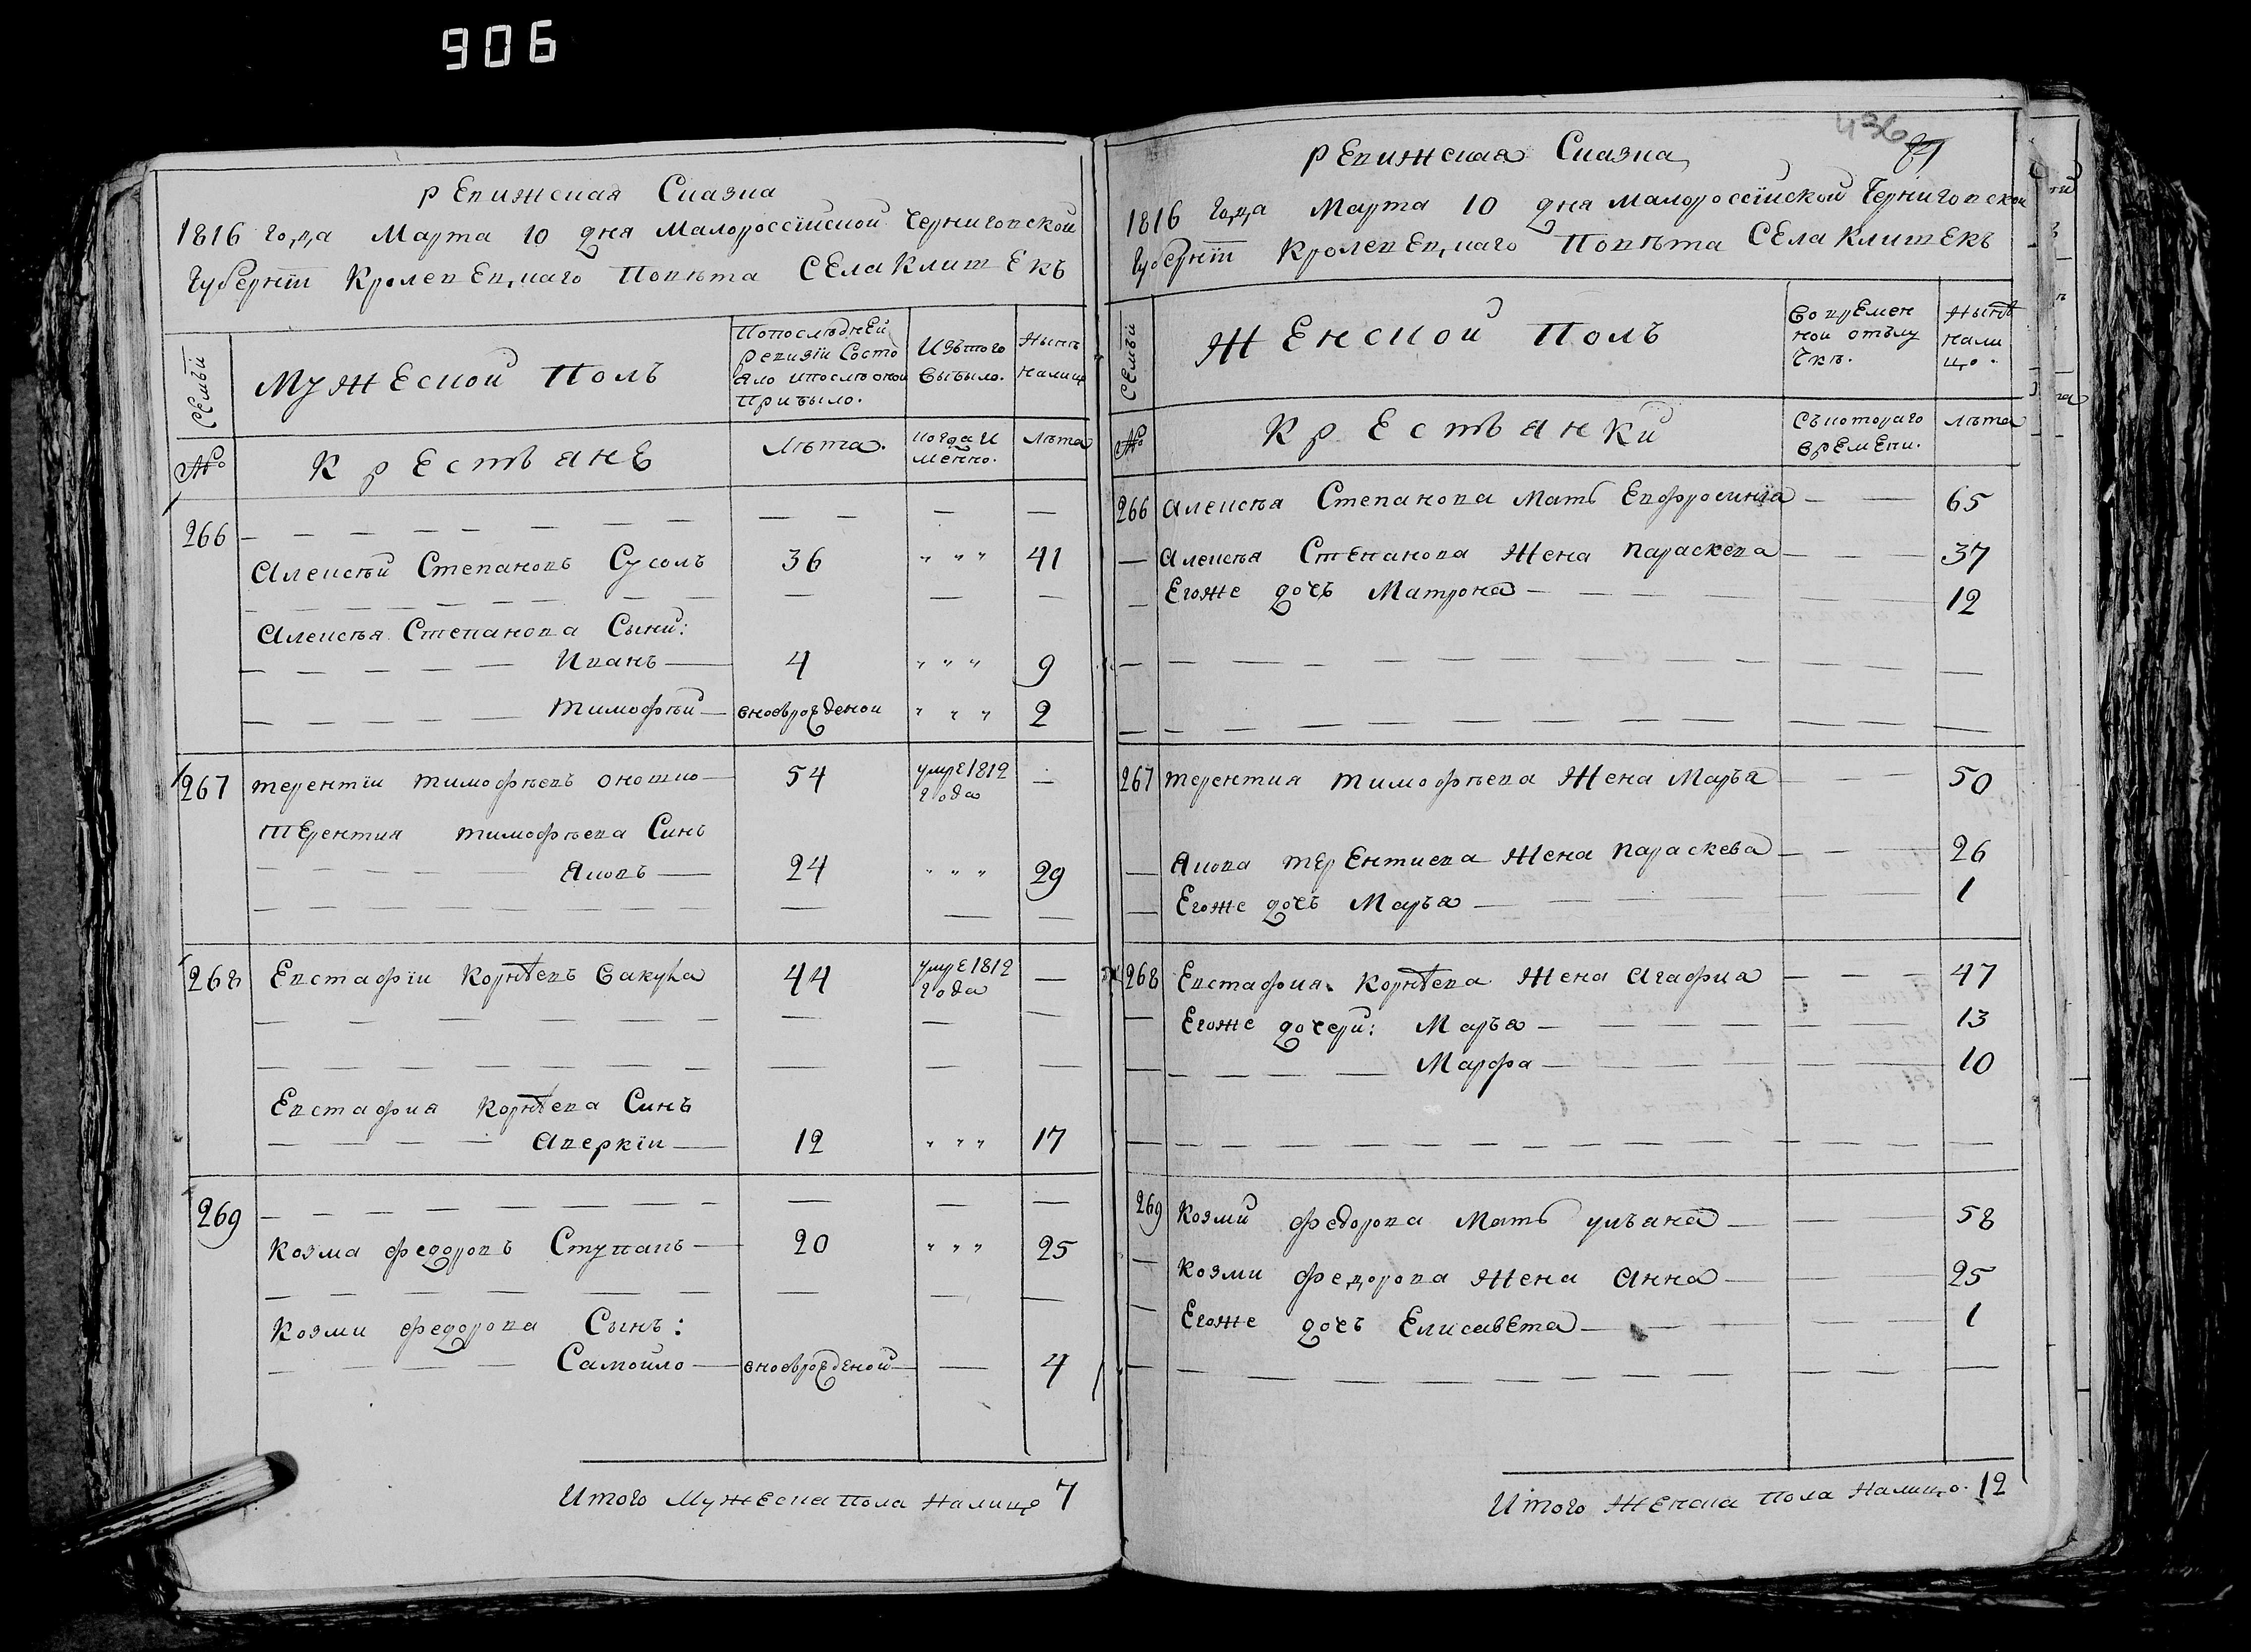 906
рЕвижская Сказка
1816 года Марта 10 дня Малороссїйской Черниговской
Губернїи КролевЕцкаго Повѣта СЕла КлишЕкъ
СЕмьи
МужЕской Полъ
Попослѣдней
Ревизїи Состо
яло ипослѣ оной
Прибыло.
Изътого
Выбыло.
Нынѣ
налицо
№
КрЕстьянЕ
Лѣта.
Когда и
менно.
Лѣта
266
Алексѣй Степановъ Сусолъ 36 " " " 41
Алексѣя Степанова Сыни:
Иванъ 4 " " " 9
Тимофѣй вновьрожденой " " " 2
267 терентїи тимофѣевъ 54 умре 1812 —
года
тЕрентия тимофѣева Синъ
Яковъ 24 " " " 29
268 Евстафїи Корнѣевъ 44 умре 1812 —
года
Евстафия Корнѣева Синъ
Аверкїи 12 " " " 17
269
Козма федоровъ Ступакъ 20 " " " 25
Козми федорова Сынъ:
Самойло вновьрожденой — 4
Итого МужЕска Пола Налицо 7
436
рЕвижская Сказка
1816 года Марта 10 дня Малороссїиской Черниговской
Губернїи КролевЕцкаго Повѣта СЕла КлишЕкъ
СЕмьи
ЖЕнской Полъ
Во врЕмен
ной отълу
чкѣ.
Нынѣ
нали
цо.
№
КрЕстьянки
Съкотораго
врЕмЕни.
Лѣта
266 Алексѣя Степанова Мать Евфросиния — — 65
— Алексѣя Степанова Жена Параскева — — 37
— Егоже дочь Матрона — 12
267 терентия тимофѣева Жена Маръя — — 50
— Якова терЕнтиева Жена Параскева — — 26
— Егоже дочъ Маръя — 1
268 Евстафия Корнѣева Жена Агафия — — — 47
— Егоже дочери: Маръя — 13
Марфа — 10
269 Козми федорова Мать улъяна — — 58
— Козми федорова Жена Анна — — 25
— Егоже дочъ ЕлисавЕта — 1
Итого ЖЕнска Пола Налицо. 12